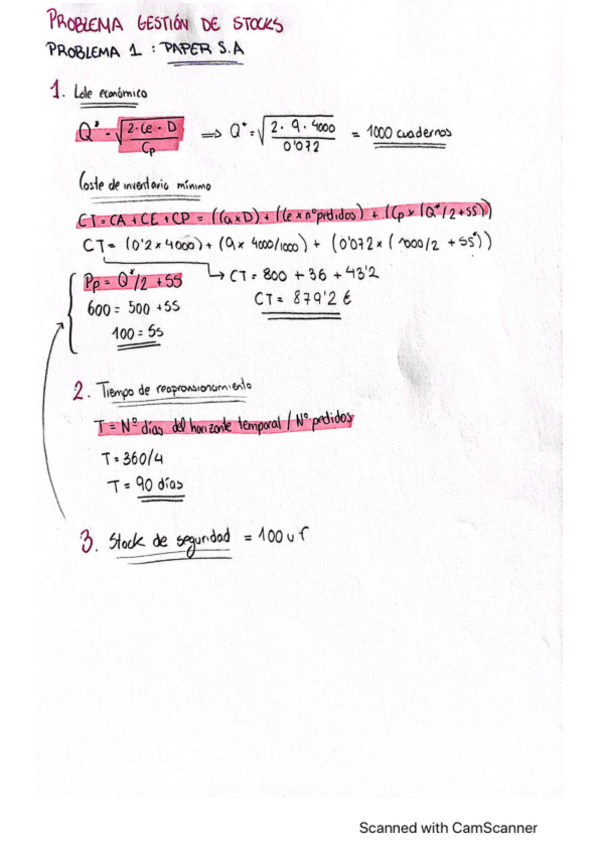 PROBLEMA GESTIÓN DE STOCKS
PROBLEMA 1 : PAPER S.A
1. Lote económico
Q* = √(2·Ce·D / Cp) ⟹ Q* = √(2·9·4000 / 0'072) = 1000 cuadernos
Coste de inventario mínimo
CT = CA + CE + CP = ((a x D) + (Ce x nº pedidos) + (Cp x (Q*/2 + SS))
CT = (0'2 x 4000) + (9 x 4000/1000) + (0'072 x (1000/2 + SS))
Pp = Q*/2 + SS
CT = 800 + 36 + 43'2
600 = 500 + SS
CT = 879'2 €
100 = Ss
2. Tiempo de reaprovisionamiento
T = Nº días del horizonte temporal / Nº pedidos
T = 360/4
T = 90 días
3. Stock de seguridad = 100 u f
Scanned with CamScanner